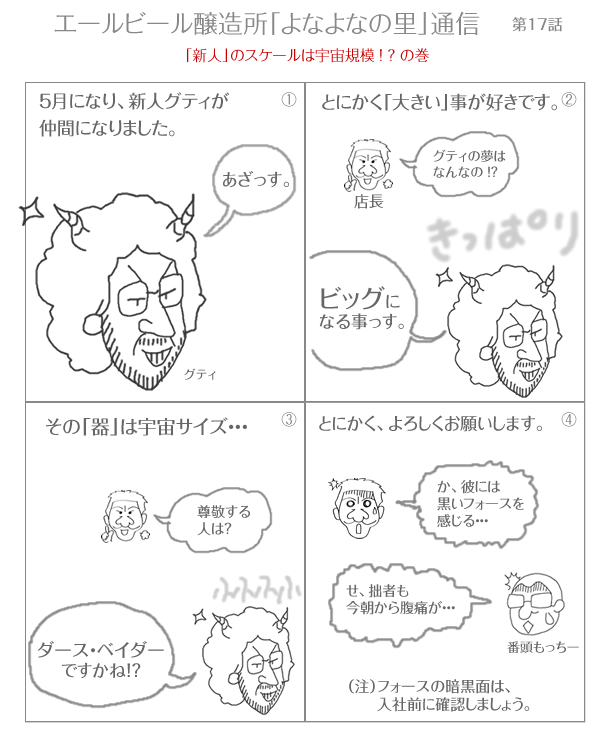 エールビール醸造所「よなよなの里」通信 第17話
「新人」のスケールは宇宙規模！？の巻
5月になり、新人グティが ①
仲間になりました。
あざっす。
グティ
とにかく「大きい」事が好きです。②
グティの夢は
なんなの！？
店長
きっぱり
ビッグに
なる事っす。
その「器」は宇宙サイズ・・・ ③
尊敬する
人は？
ふふふふ
ダース・ベイダー
ですかね!?
とにかく、よろしくお願いします。 ④
か、彼には
黒いフォースを
感じる・・・
せ、拙者も
今朝から腹痛が・・・
番頭もっちー
（注）フォースの暗黒面は、
入社前に確認しましょう。